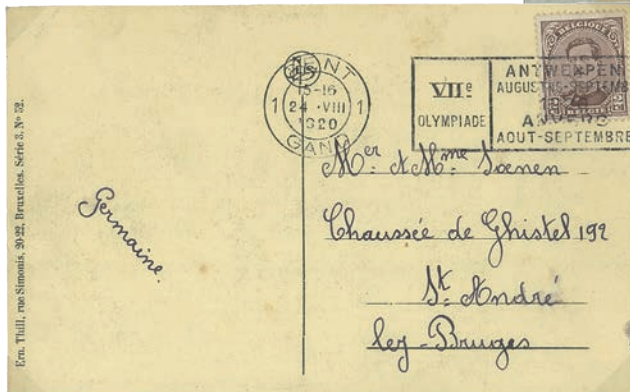 Ern. Thill, rue Simonis, 20-22, Bruxelles. Série 3, Nº 52.
Germaine.
1 GENT 1
15-16
24 · VIII
1920
GAND
VIIe
OLYMPIADE
ANTWERPEN
AUGUSTUS-SEPTEMB
ANVERS
AOUT-SEPTEMBRE
BELGIQUE
Mer & Mme Soenen
Chaussée de Ghistel 192
St. André
lez-Bruges